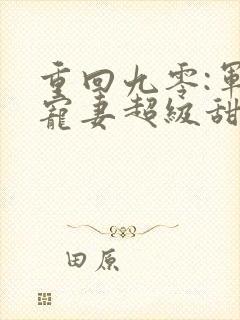 重回九零:軍
寵妻超級甜
田原